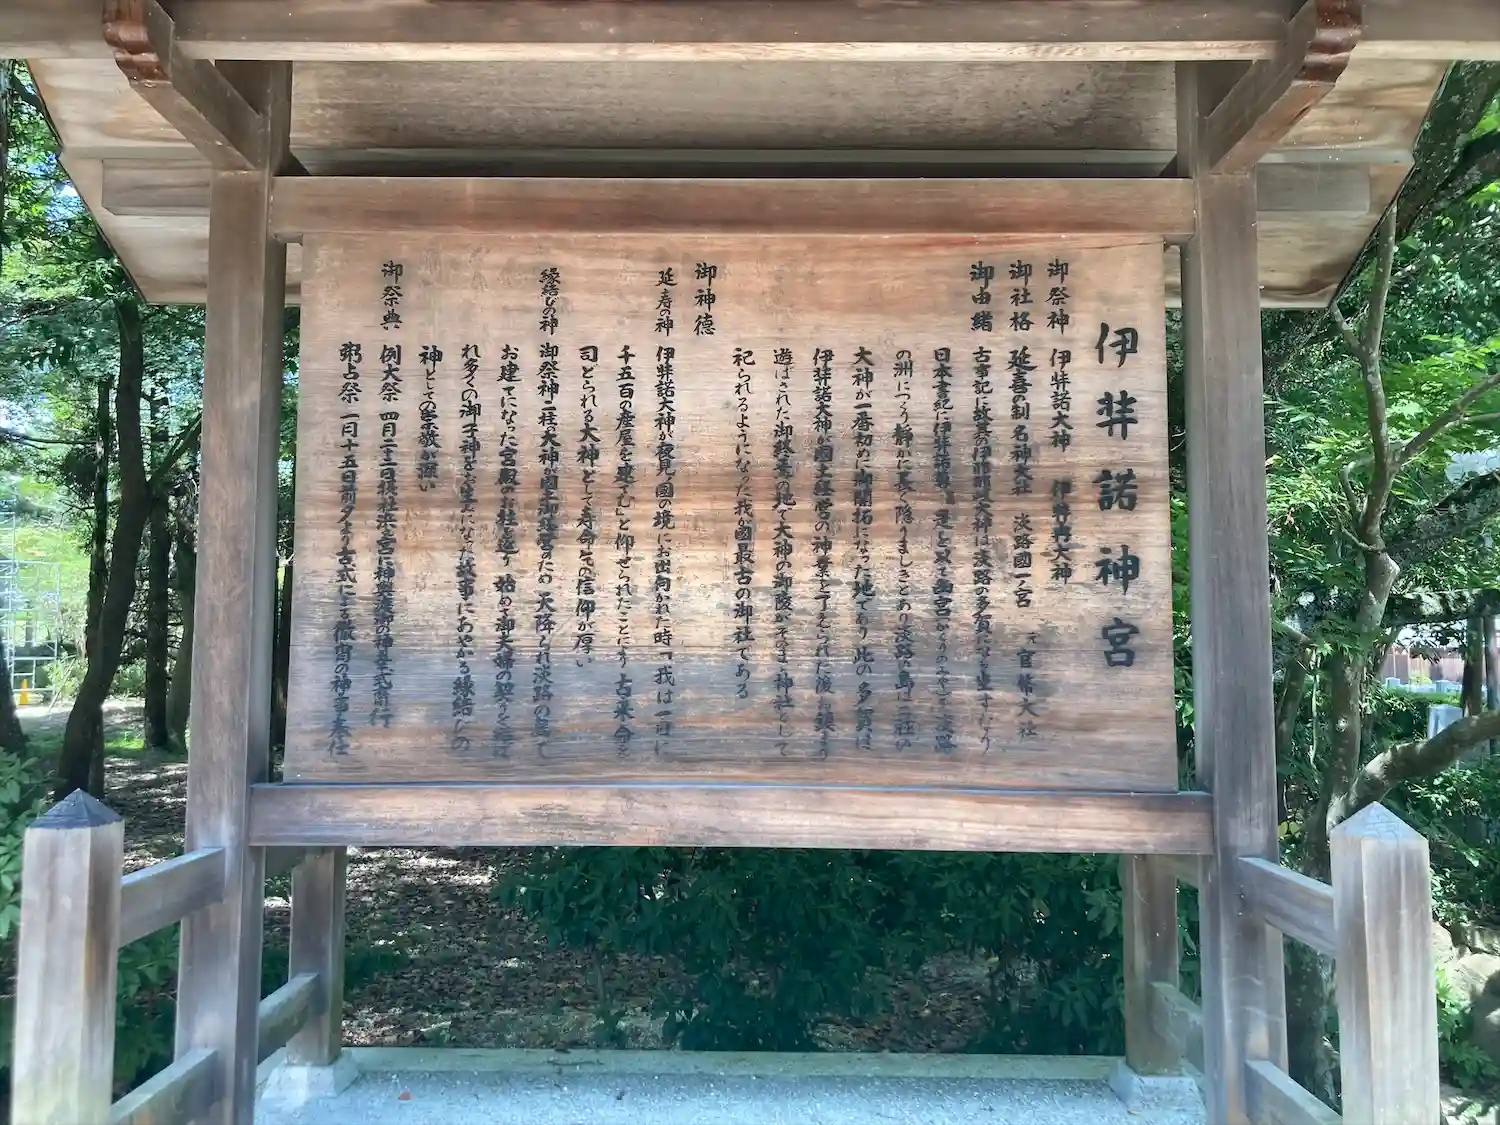 伊弉諾神宮
御祭神 伊弉諾大神 伊弉冉大神
御社格 延喜の制 名神大社 淡路國一宮 元 官幣大社
御由緒 古事記に故其の伊耶那岐大神は淡路の多賀になも坐すなり
日本書紀に伊弉諾尊 是を以て幽宮 淡路
の洲につくり静かに長く隠りましきとあり淡路の島は二柱の
大神が一番初めに御開拓になった地であり此の多賀は
伊弉諾大神が國土経営の神業を了えられた後お鎮まり
遊ばされた御終焉の地で大神の御陵がそのまま神社として
祀られるようになった我が國最古の御社である
御神徳
延寿の神 伊弉諾大神が夜見の國の境にお出向かれた時「我は一日に
千五百の産屋を建てむ」と仰せられたことにより古来命を
司どられる大神として寿命との信仰が厚い
縁結びの神 御祭神二柱の大神が國土御経営のため天降られ淡路の島で
お建てになった宮殿のお社を造り 始めて御夫婦の契りを遊ば
れ多くの御子神をお生みになった故事にあやかる縁結びの
神としての崇敬が深い
御祭典 例大祭 四月二十二日 摂社浜之宮に神輿渡御の神幸式斎行
粥占祭 一月十五日前夕より古式による徹宵の神事奉仕